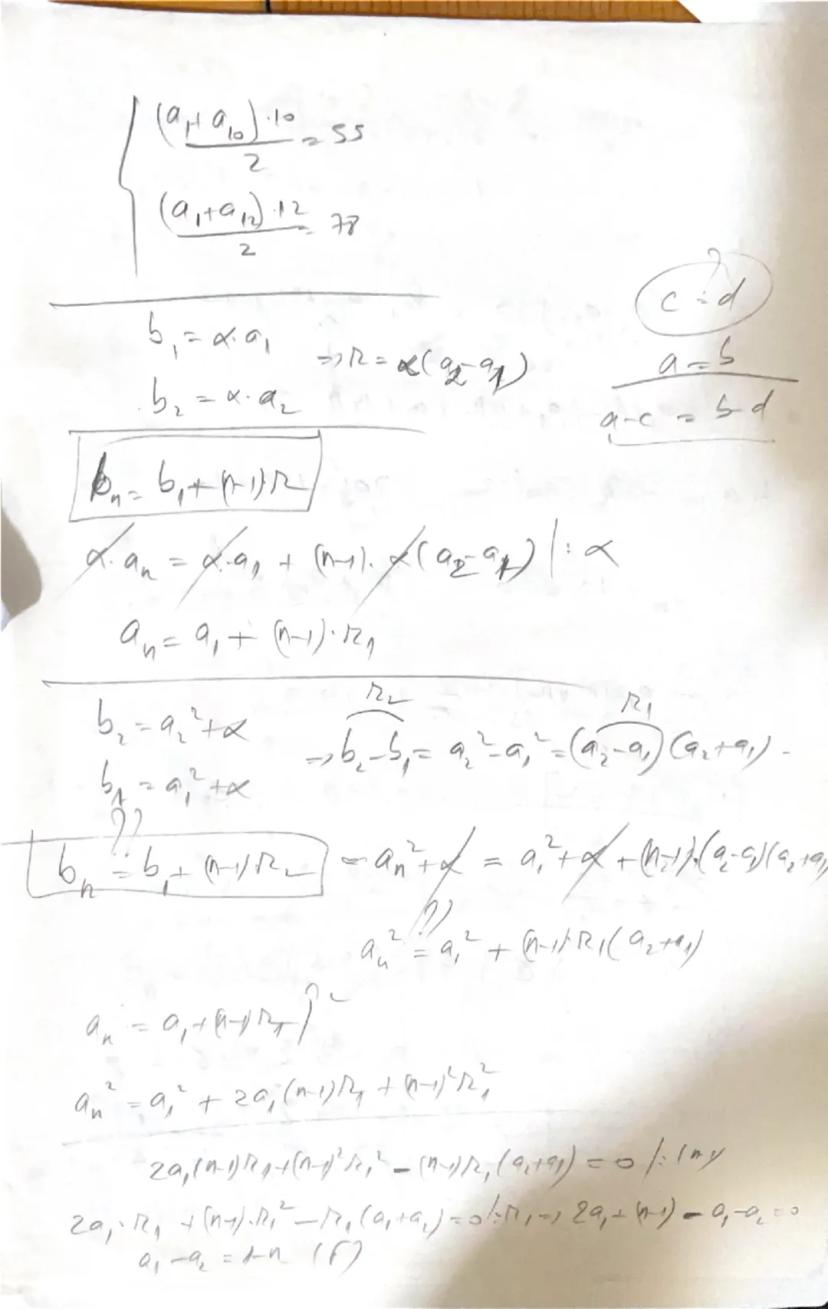 (a₁+a₁₀)·10 / 2 = 55
(a₁+a₁₂)·12 / 2 = 78
c = d
?
b₁ = α·a₁
⇒ r = α(a₂-a₁)
a = b
b₂ = α·a₂
a-c = b-d
bₙ = b₁ + (n-1)r
α·aₙ = α·a₁ + (n-1)·α(a₂-a₁) |:α
aₙ = a₁ + (n-1)·r₁
b₂ = a₂² + α
⇒ b₂-b₁ = a₂²-a₁² = (a₂-a₁)(a₂+a₁)
r₂
r₁
b₁ = a₁² + α
??
bₙ = b₁ + (n-1)r₂
= aₙ² + α = a₁² + α + (n-1)·(a₂-a₁)(a₂+a₁)
??
aₙ² = a₁² + (n-1)r₁(a₂+a₁)
aₙ = a₁ + (n-1)r₁ |²
aₙ² = a₁² + 2a₁(n-1)r₁ + (n-1)²r₁²
2a₁(n-1)r₁ + (n-1)²r₁² - (n-1)r₁(a₂+a₁) = 0 |:(n-1)
2a₁·r₁ + (n-1)·r₁² - r₁(a₁+a₂) = 0 |:r₁ ⇒ 2a₁ + (n-1) - a₁ - a₂ = 0
a₁ - a₂ = 1-n (F)